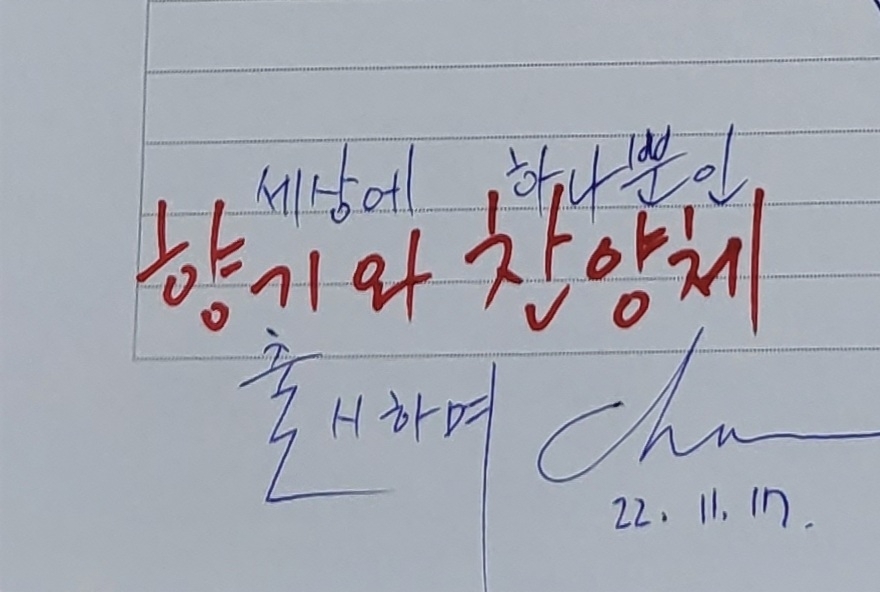 세상에 하나뿐인
향기와 찬양제
하며
22. 11. 17.